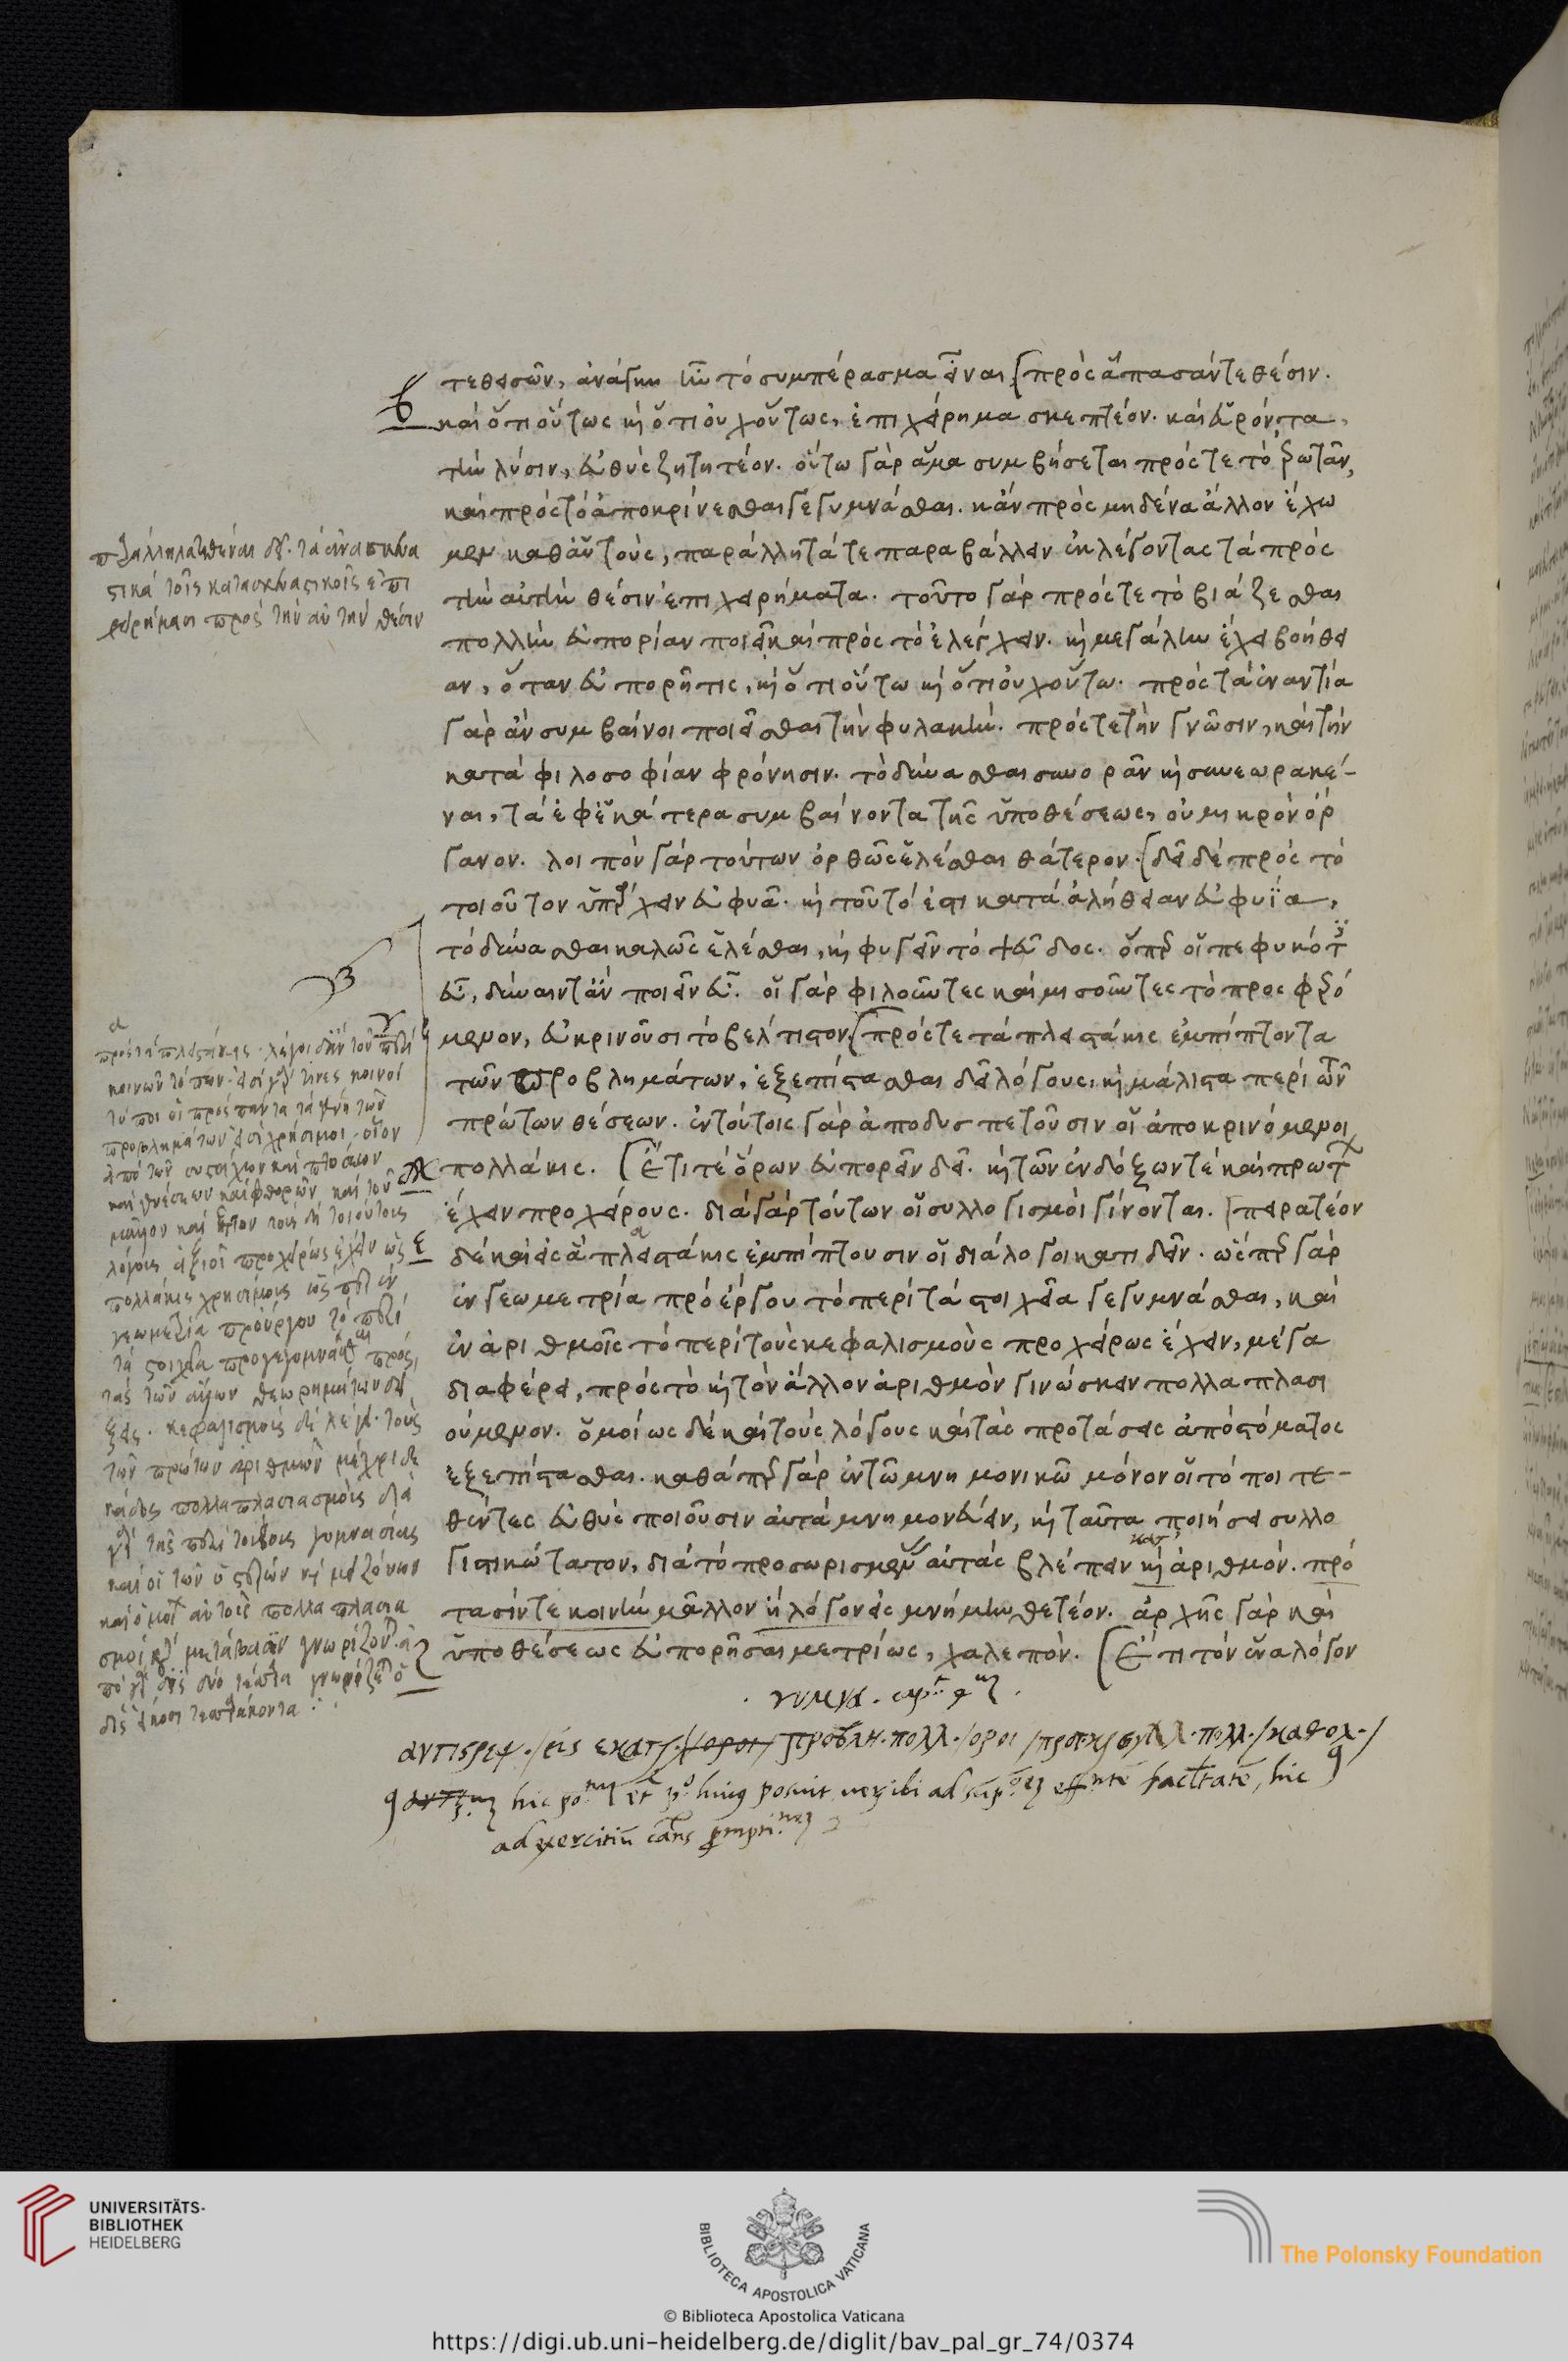 τεθεισῶν, ἀνάγκη ἦν τὸ συμπέρασμα εἶναι πρὸς ἅπασάν τε θέσιν.
β καὶ ὅτι οὕτως κ ὅτι οὐχ οὕτως, ἐπιχείρημα σκεπτέον. καὶ εὑρόντα
τὴν λύσιν, εὐθὺς ζητητέον. οὕτω γὰρ ἅμα συμβήσεται πρός τε τὸ ἐρωτᾶν,
καὶ πρὸς τὸ ἀποκρίνεσθαι γεγυμνάσθαι. κἂν πρὸς μηδένα ἄλλον ἔχω
μεν καθ' αὑτούς, παράλληλά τε παραβάλλειν ἐκλέγοντας τὰ πρὸς
τὴν αὐτὴν θέσιν ἐπιχειρήματα. τοῦτο γὰρ πρός τε τὸ βιάζεσθαι
πολλὴν εὐπορίαν ποιεῖ καὶ πρὸς τὸ ἐλέγχειν. κ μεγάλην ἔχει βοήθει
αν, ὅταν εὐπορῇ τις, κ ὅτι οὕτω κ ὅτι οὐχ οὕτω. πρὸς τὰ ἐναντία
γὰρ ἂν συμβαίνοι ποιεῖσθαι τὴν φυλακήν. πρός τε τὴν γνῶσιν, καὶ τὴν
κατὰ φιλοσοφίαν φρόνησιν. τὸ δύνασθαι συνορᾶν κ συνεωρακέ-
ναι, τὰ ἐφ' ἑκάτερα συμβαίνοντα τῆς ὑποθέσεως, οὐ μικρὸν ὄρ
γανον. λοιπὸν γὰρ τούτων ὀρθῶς ἑλέσθαι θάτερον. δεῖ δὲ πρὸς τὸ
τοιοῦτον ὑπάρχειν εὐφυᾶ. κ τοῦτό ἐστι κατὰ ἀλήθειαν εὐφυΐα,
τὸ δύνασθαι καλῶς ἑλέσθαι, κ φυγεῖν τὸ ψεῦδος. ὅπερ οἱ πεφυκότες
εὖ, δύνανται ἂν ποιεῖν εὖ. οἱ γὰρ φιλοῦντες καὶ μισοῦντες τὸ προσφερό
μενον, εὖ κρινοῦσι τὸ βέλτιστον. πρός τε τὰ πλειστάκις ἐμπίπτοντα
τῶν προβλημάτων, ἐξεπίστασθαι δεῖ λόγους, κ μάλιστα περὶ τῶν
πρώτων θέσεων. ἐν τούτοις γὰρ ἀποδυσπετοῦσιν οἱ ἀποκρινόμενοι
πολλάκις. Ἔτι τε ὅρων εὐπορεῖν δεῖ. κ τῶν ἐνδόξων τὲ καὶ πρώτων
ἔχειν προχείρους. διὰ γὰρ τούτων οἱ συλλογισμοὶ γίνονται. πειρατέον
ε δὲ καὶ εἰς ἃ πλειστάκις ἐμπίπτουσιν οἱ διάλογοι κατιδεῖν. ὥσπερ γὰρ
ἐν γεωμετρία πρὸ ἔργου τὸ περὶ τὰ στοιχεῖα γεγυμνάσθαι, καὶ
ἐν ἀριθμοῖς τὸ περὶ τοὺς κεφαλισμοὺς προχείρως ἔχειν, μέγα
διαφέρει, πρὸς τὸ κ τὸν ἄλλον ἀριθμὸν γινώσκειν πολλαπλασι
ούμενον. ὁμοίως δὲ καὶ τοὺς λόγους καὶ τὰς προτάσεις ἀπὸ στόματος
ἐξεπίστασθαι. καθάπερ γὰρ ἐν τῶ μνημονικῶ μόνον οἱ τόποι τε-
θέντες εὐθὺς ποιοῦσιν αὐτὰ μνημονεύειν, κ ταῦτα ποιήσει συλλο
γιστικώτατον, διὰ τὸ προσωρισμένας αὐτὰς βλέπειν κατ' ἀριθμόν. πρό
τασίν τε κοινὴν μᾶλλον ἢ λόγον εἰς μνήμην θετέον. ἀρχῆς γὰρ καὶ
ὑποθέσεως εὐπορῆσαι μετρίως, χαλεπόν. Ἔτι τὸν ἕνα λόγον
αντιστρεψ. / εἰς εκατ / οροι / προβλη. πολλ. / οροι / / καθολ. /
hic et posuit ibi ad hic
ad exercitiū
τὰ ἀνασκευα
στικὰ τοῖς κατασκευαστικοῖς ἐπι
χειρήμασι πρὸς τὴν αὐτὴν θέσιν
πρὸς τὰ πλειστάκις. λέγοι
κοινῶν τόπων. τινες κοινοὶ
τόποι οἱ πρὸς πάντα τὰ γένη τῶν
προβλημάτων εἰσὶ χρήσιμοι. οἷον
ἀπὸ τῶν συστοίχων καὶ πτώσεων
καὶ γενέσεων καὶ φθορῶν, καὶ τοῦ
μᾶλλον καὶ ἧττον τοὺς δὴ τοιούτους
λόγους ἀξιοῖ προχείρως ἔχειν ὡς
πολλάκις χρησίμους ἐν
γεωμετρία προύργου τὸ περὶ
τὰ στοιχεῖα πρὸς
τὰς τῶν ἄλλων θεωρημάτων δεί
ξεις. κεφαλισμοὺς δὲ λέγει τοὺς
τῶν πρώτων ἀριθμῶν μέχρι δε
κάδος πολλαπλασιασμοὺς διὰ
γὰρ τῆς περὶ τούτους γυμνασίας
καὶ οἱ τῶν ὑστέρων κ μειζόνων
πολλαπλασια
σμοὶ γνωρίζονται
δὶς δύο τέσσαρα γνωρίζεται
δὶς εἴκοσι τεσσαράκοντα
UNIVERSITÄTS-
BIBLIOTHEK
HEIDELBERG
BIBLIOTECA APOSTOLICA VATICANA
The Polonsky Foundation
© Biblioteca Apostolica Vaticana
https://digi.ub.uni-heidelberg.de/diglit/bav_pal_gr_74/0374